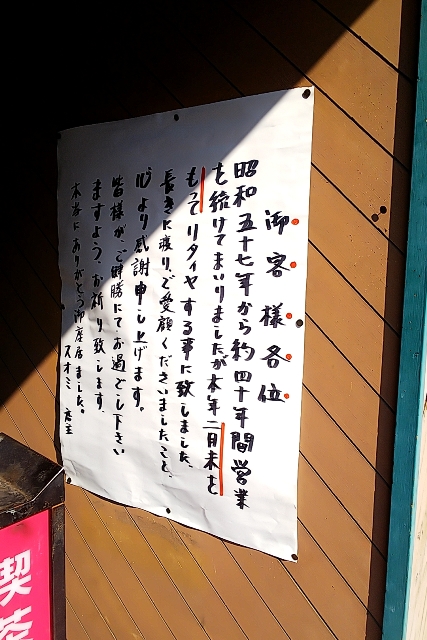 御客様各位
昭和五十七年から約四十年間営業
を続けてまいりましたが本年二月末を
もってリタイヤする事に致しました。
長きに渡りご愛顧くださいましたこと、
心より感謝申し上げます。
皆様がご健勝にてお過ごし下さい
ますようお祈り致します。
本当にありがとう御座居ました。
スオミ 店主
喫茶